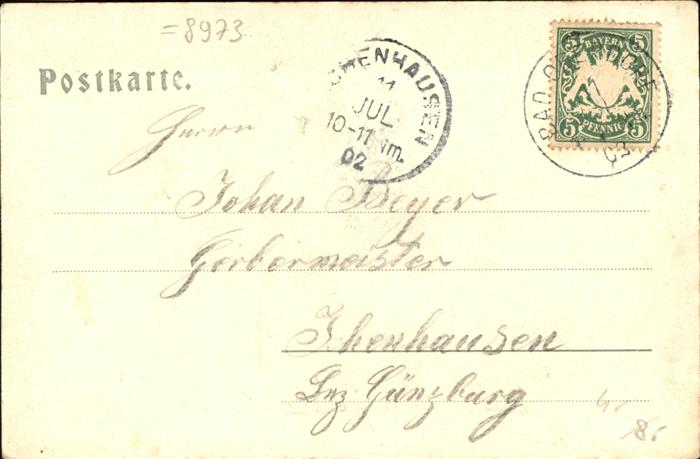 =8973
Postkarte.
ICHENHAUSEN
11
JUL.
10-11 Nm.
02
5 BAYERN 5
5 PFENNIG 5
BAD
02
Herrn
Johan Beyer
Gerbermeister
Ichenhausen
Bez. Günzburg